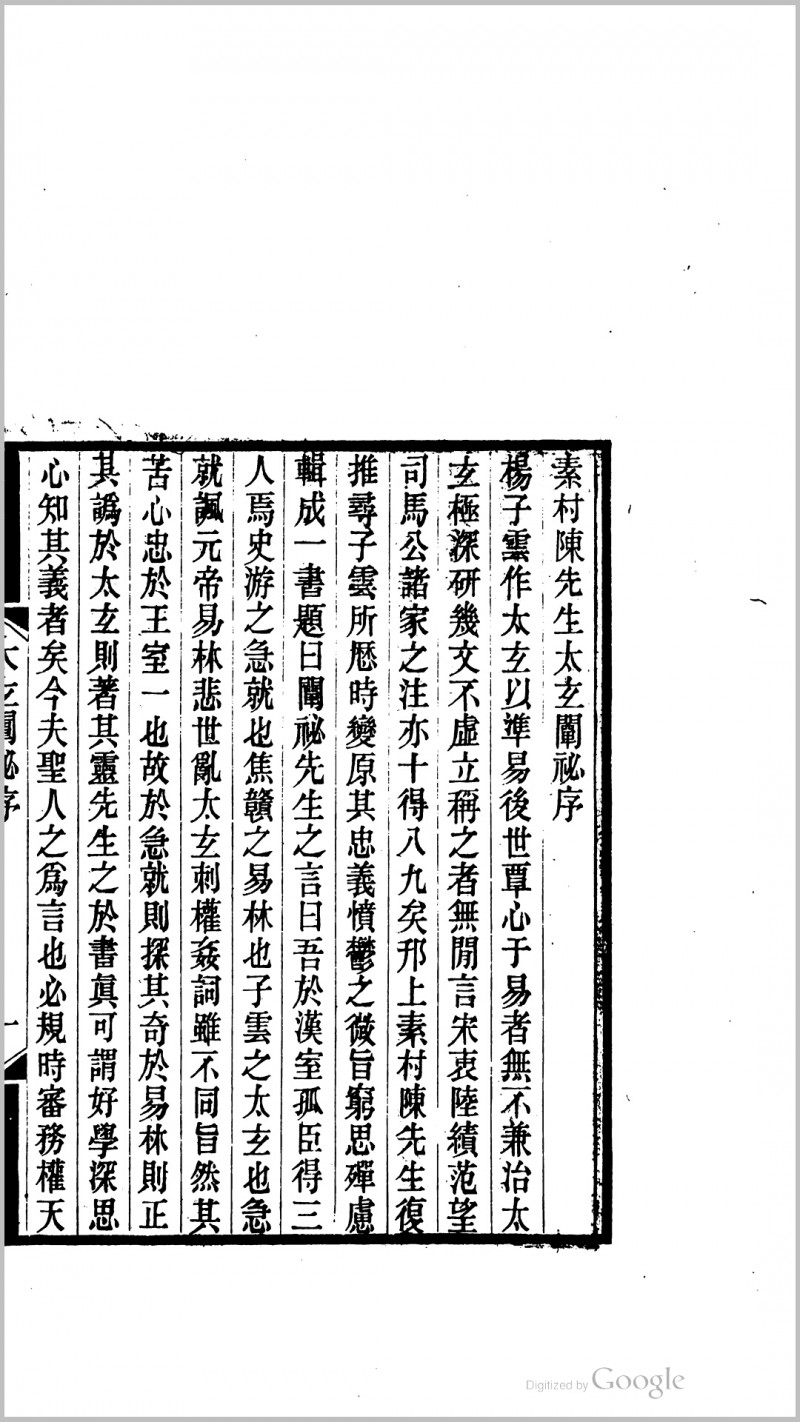 素村陳先生太玄闡祕序
楊子雲作太玄以準易後世覃心于易者無不兼治太
玄極深研幾文不虛立稱之者無閒言宋衷陸績范望
司馬公諸家之注亦十得八九矣邗上素村陳先生復
推尋子雲所歷時變原其忠義憤鬱之微旨窮思殫慮
輯成一書題曰闡祕先生之言曰吾於漢室孤臣得三
人焉史游之急就也焦贛之易林也子雲之太玄也急
就諷元帝易林悲世亂太玄刺權姦詞雖不同旨然其
苦心忠於王室一也故於急就則探其奇於易林則正
其譌於太玄則著其靈先生之於書眞可謂好學深思
心知其義者矣今夫聖人之爲言也必規時審務權天
太玄闡祕序
一
Digitized by Google